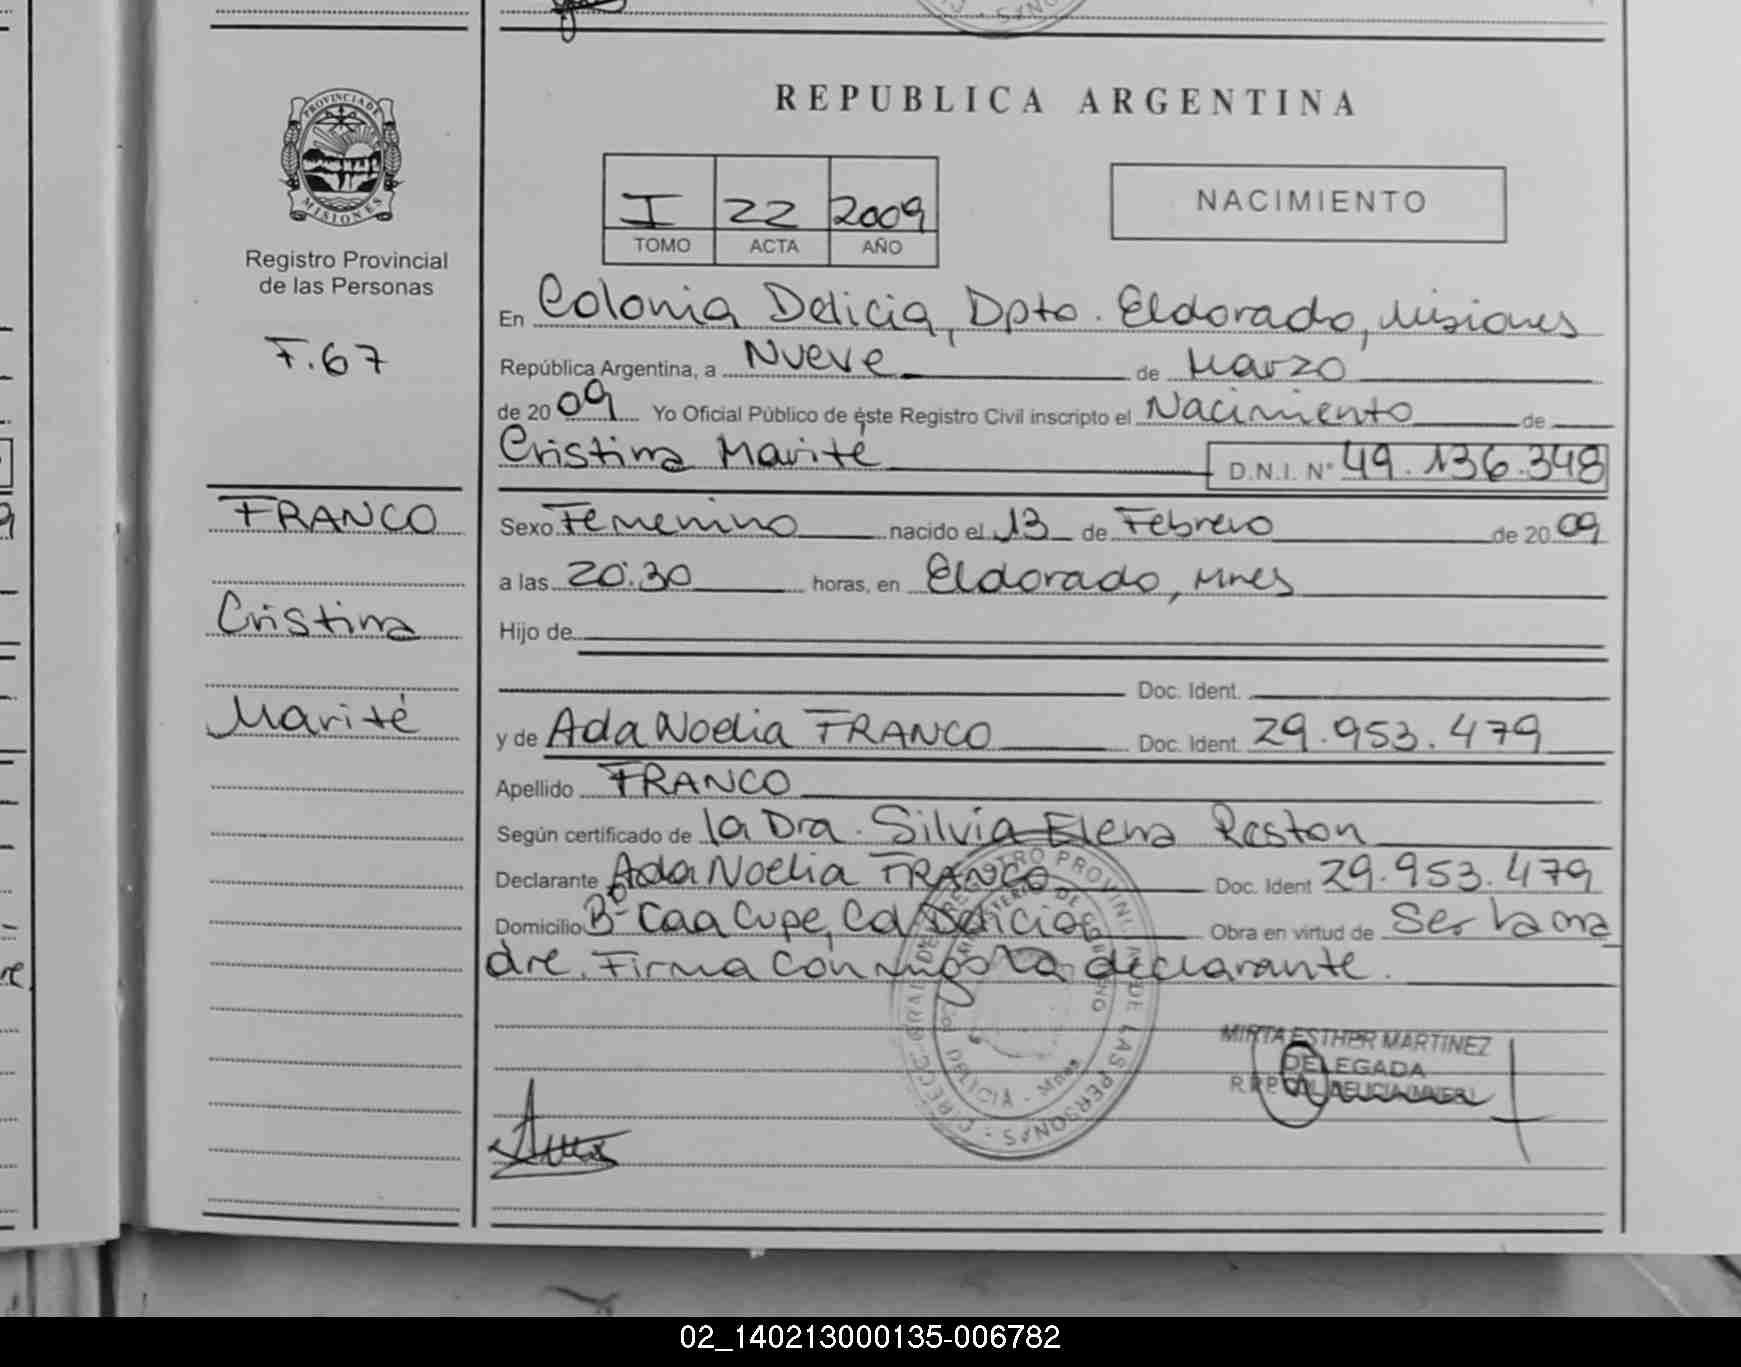 REPUBLICA ARGENTINA
PROVINCIA DE
MISIONES
Registro Provincial
de las Personas
F.67
FRANCO
Cristina
Marité
I 22 2009
TOMO ACTA AÑO
NACIMIENTO
En Colonia Delicia, Dpto. Eldorado, Misiones
República Argentina, a Nueve de Marzo
de 2009 Yo Oficial Público de éste Registro Civil inscripto el Nacimiento de
Cristina Marité D.N.I. N° 49.136.348
Sexo Femenino nacido el 13 de Febrero de 2009
a las 20:30 horas, en Eldorado, Mnes
Hijo de
Doc. Ident.
y de Ada Noelia FRANCO Doc. Ident. 29.953.479
Apellido FRANCO
Según certificado de la Dra. Silvia Elena Reston
Declarante Ada Noelia FRANCO Doc. Ident 29.953.479
Domicilio B° Caa Cupe, Cd Delicia Obra en virtud de Ser la ma
dre. Firma con migo la declarante.
MIRTA ESTHER MARTINEZ
DELEGADA
02_140213000135-006782